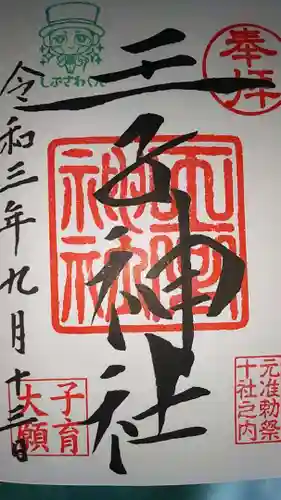 奉拝
王子神社
元准勅祭
十社之内
しぶさわくん
令和三年九月十三日
子育
大願